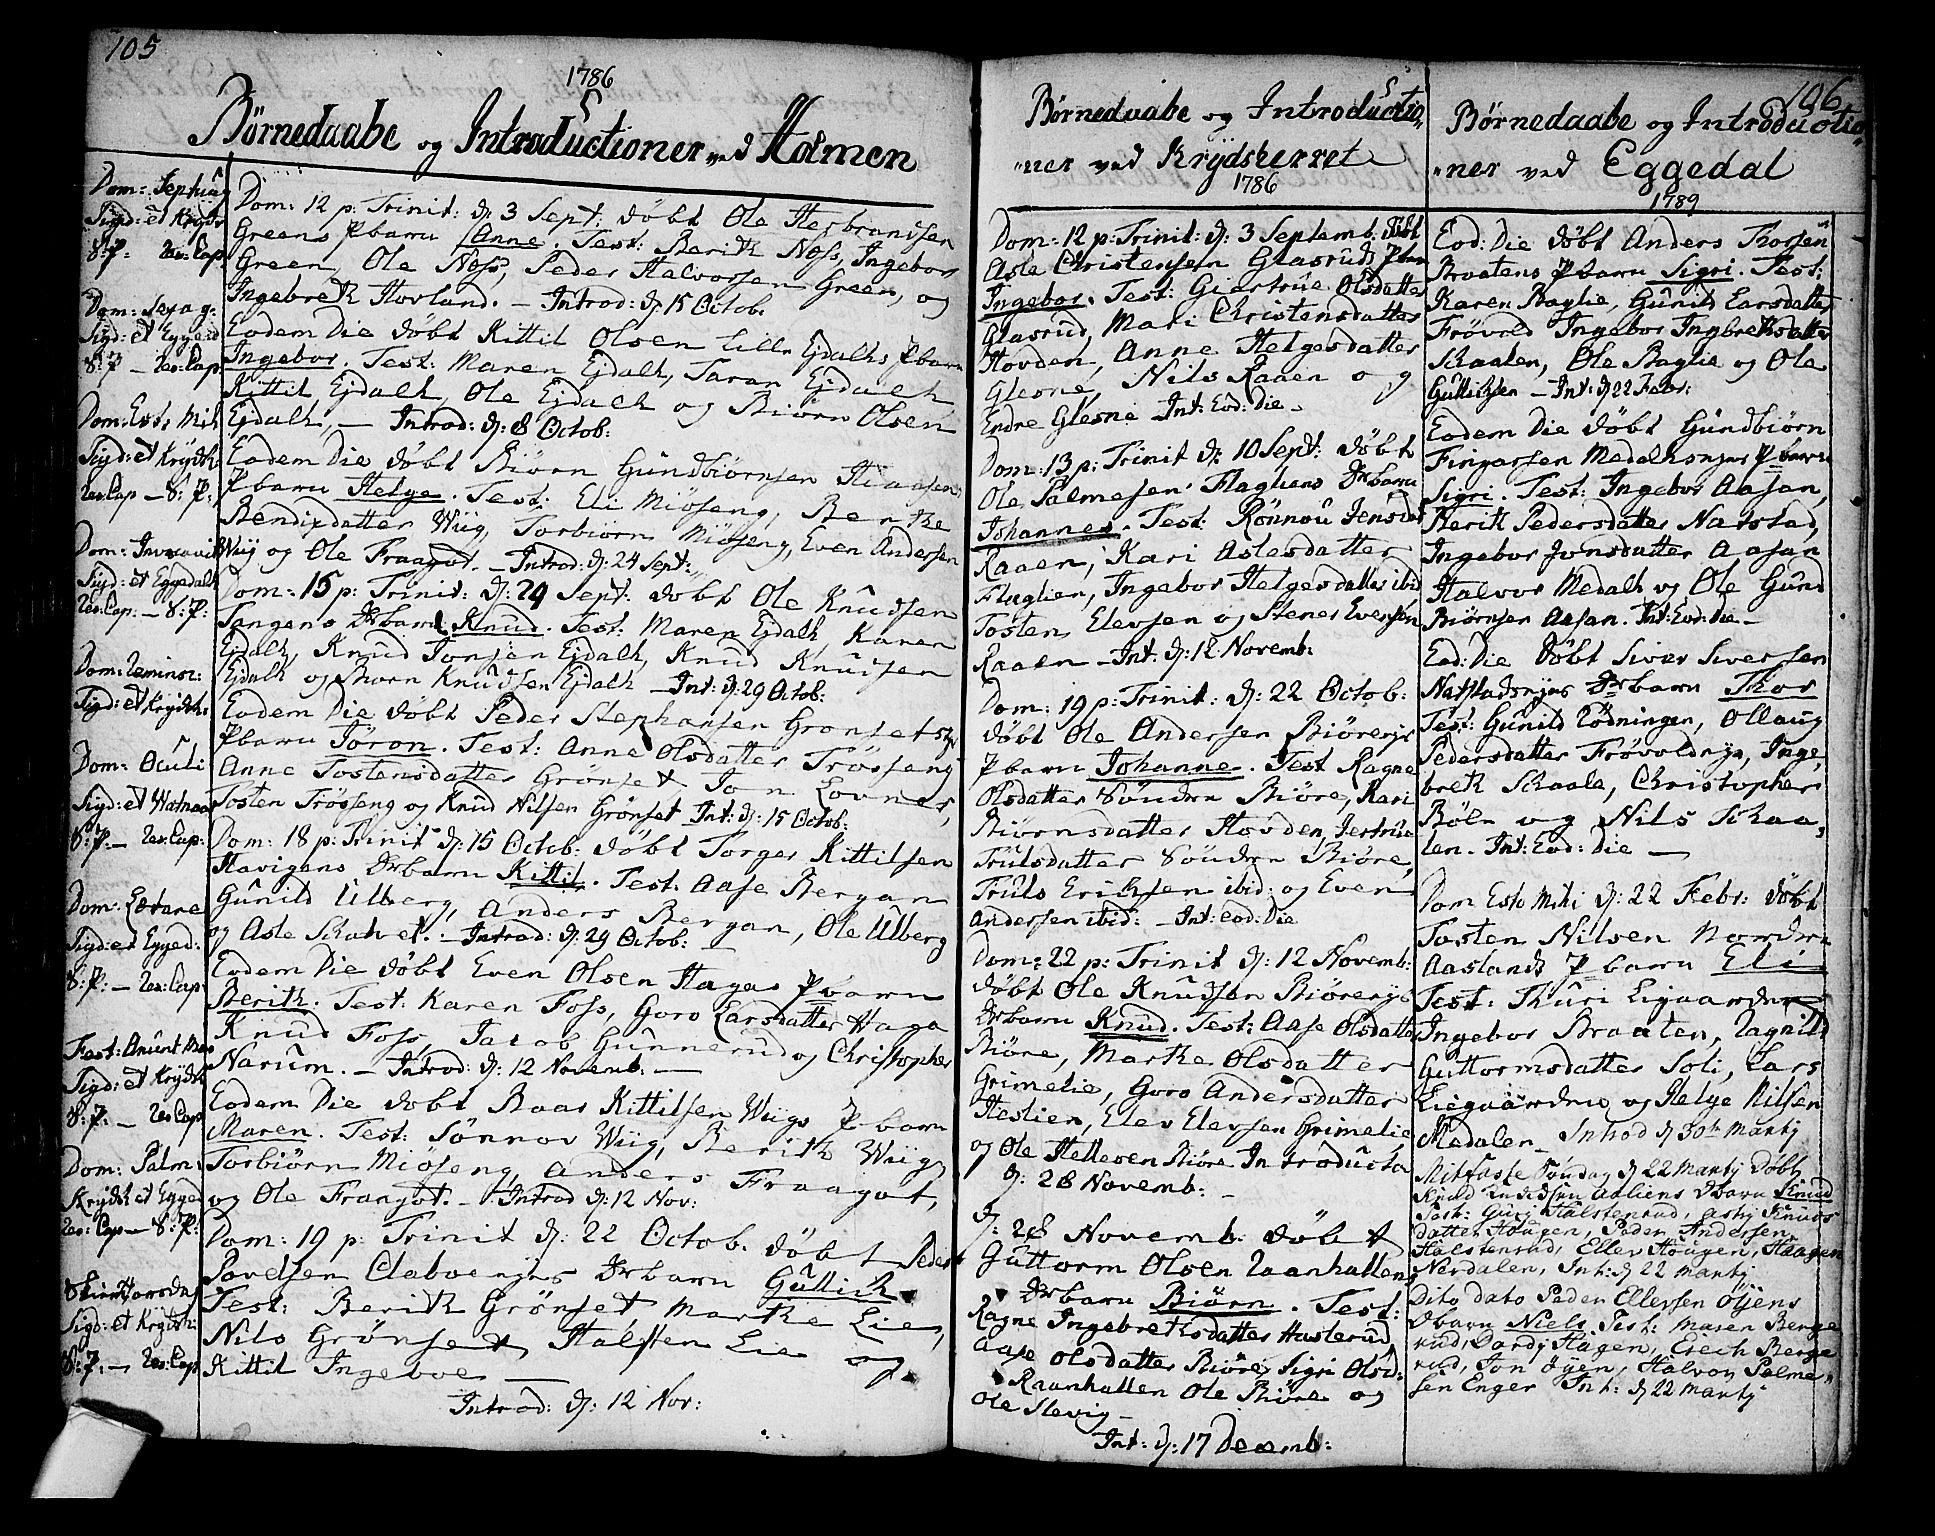 105
1786
Børnedaabe og Introductioner ved Holmen
Dom: Septuag
Sigd: et Kryds
S: P: Res: Cap
Dom: Sexag:
Sigd: et Eggeda
S: P – Res: Cap
Dom: Esto Mih
Sigd: et Krydsh
Res: Cap – S: P:
Dom: Invocavit
Sigd: et Eggedalh
Res: Cap: – S: P:
Dom: Reminisc:
Sigd: et Krydsh:
Dom: Oculi
Sigd: et Watnaas
S: P: – Res: Cap:
Dom: Lætare
Sigd: et Egged:
S: P: – Res: Cap:
Fest: Anunt Mar
Sigd: et Krydsh
S: P: – Res: Cap
Dom: Palm:
Krydsh et Egged
Res: Cap – S: P:
Skiertorsdag
Sigd: et Krydsh:
S: P: – Res: Cap
Dom: 12 p: Trinit: d: 3 Sept: døbt Ole Herbrandsen
Greens P barn Anne. Test: Berith Noss, Ingebor
Green, Ole Noss, Peder Halvorsen Green, og
Ingebreth Hovland. – Introd: d: 15 Octob.
Eodem Die døbt Kittil Olsen Lille Ejdalhs P barn
Ingebor. Test: Maren Ejdalh, Taran Ejdalh
Kittil Ejdalh, Ole Ejdalh og Biørn Olsen
Ejdalh, – Introd: d: 8 Octob:
Eodem Die døbt Biørn Gundbiørnsen Hiaasens
P barn Helge. Test: Eli Miøseng, Berthe
Bendixdatter Wiig, Torbiørn Miøseng, Even Andersen
Wiig og Ole Fraagot. – Introd: d: 24 Sept:
Dom: 15 p: Trinit: d: 24 Sept: døbt Ole Knudsen
Tangens Dr barn Knud. Test: Maren Ejdalh, Karen
Ejdalh, Knud Jonsen Ejdalh, Knud Knudsen
Ejdalh og Biørn Knudsen Ejdalh – Int: d: 29 Octob:
Eodem Die døbt Peder Stephansen Grønsets
P barn Jøron. Test: Anne Olsdatter Trøsseng
Anne Tostensdatter Grønset Jon Lovnes,
Tosten Trøsseng og Knud Nilsen Grønset Int: d: 15 Octob:
Dom: 18 p: Trinit d: 15 Octob: døbt Torger Kittilsen
Havigens Dr barn Kittil. Test: Aase Bergan
Gunild Ulberg, Anders Bergan, Ole Ulberg
og Asle Skalvet. – Introd: d: 29 Octob: –
Eodem Die døbt Even Olsen Hagas P barn
Berith. Test: Karen Foss, Goro Larsdatter Haga
Knud Foss, Jacob Gunnerud og Christopher
Narum. – Introd: d: 12 Novemb. –
Eodem Die døbt Boar Kittilsen Wiigs P barn
Maren. Test: Sønnov Wiig, Berith Wiig
Torbiørn Miøseng, Anders Fraagot,
og Ole Fraagot. – Introd d: 12 Nov:
Dom: 19 p: Trinit d: 22 Octob. døbt Peder
Povelsen Dr barn Gullich
Test: Berith Grønset, Marthe Lie,
Nils Grønset, Halsten Lie og
Kittil Ingeboe
Introd: d: 12 Nov:
Børnedaabe og Introductio-
ner ved Krydsherret
1786
Dom: 12 p: Trinit: d: 3 Septemb: døbt
Asle Christensen Glasruds P barn
Ingebor. Test: Giertrue Olsdatter
Glasrud, Mari Christensdatter
Hovden, Anne Helgesdatter
Glesne, Nils Raaen og
Endre Glesne Int: Eod: Die –
Dom: 13 p: Trinit d: 10 Sept: døbt
Ole Palmesen Flagliens Dr barn
Johannes. Test: Rønnou Jensdat
Raaen, Kari Aslesdatter
Flaglien, Ingebor Helgesdatter ibid
Tosten Elevsen og Stener Evensen
Raaen – Int: d: 12 Novemb:
Dom: 19 p: Trinit: d: 22 Octob:
døbt Ole Andersen Biøreejs
P barn Johanne. Test Ragne
Olsdatter Søndre Biøre, Kari
Biørnsdatter Hovden, Jertrue
Trulsdatter Søndre Biøre,
Truls Erichsen ibid: og Even
Andersen ibid: – Int: eod: Die
Dom: 22 p: Trinit d: 12 Novemb:
døbt Ole Knudsen Biøreejs
Dr barn Knud. Test: Aase Olsdatter
Biøre, Marthe Olsdatter
Grimelie, Goro Andersdatter
Heslien, Elev Elevsen Grimelie
og Ole Hellesen Biøre Introducta
d: 28 Novemb: –
d: 28 Novemb: døbt
Guttorm Olsen Raanhattens
Dr barn Biørn. Test:
Ragne Ingebrethsdatter Hasterud
Aase Olsdatter Biøre, Sigri Olsd:
Raanhatten Ole Biøre og
Ole Slevig –
Int: d: 17 Decemb:
106
Børnedaabe og Introductio-
ner ved Eggedal
1789
Eod: Die døbt Anders Thorsen
Braatens P barn Sigri. Test:
Karen Baglie, Gunild Larsdatter
Frøvold Ingebor Ingbrethsdatter
Skaalen, Ole Baglie og Ole
Gullichsen – Int: d 22 Febr:
Eodem Die døbt Gundbiørn
Fingarsen Medalhsejes P barn
Sigri. Test: Ingebor Aasan,
Berith Pedersdatter Natstad,
Ingebor Jonsdatter Aasan
Halvor Medalh og Ole Gund
Biørnsen Aasan. Int: Eod: Die –
Eod: Die døbt Siver Siversen
Natstadsejes Dr barn Thor
Test: Gunild Rødningen, Ollaug
Pedersdatter Frøvoldeje, Inge-
breth Skaale, Christopher
Bøle og Nils Skaa-
len. Int: Eod: Die –
Dom Esto Mihi d: 22 Febr: døbt
Tosten Nilsen Nordre
Aaslands P barn Eli
Test: Thuri Ligaarden
Ingebor Braaten, Ragnild
Guttormsdatter Soli, Lars
Liegaarden og Helge Nilsen
Medalen – Introd d 30te Martij
Mitfaste Søndag d 22 Martij Døbt
Knud Knudsen Aasliens D barn Knud
Test: Guri Halstenrud, Astrj Knuds
datter Hougen, Peder Andersen
Halstenrud, Ellev Hougen, Haagen
Nordalen, Int: d 22 Martij
Dito Dato Peder Ellevsen Øijens
D barn Niels Test: Maren Berge
rud, Dordj Hagen, Erich Berge
rud, Jon Øjen, Halvor Palme-
sen Enger Int: d 22 Martij